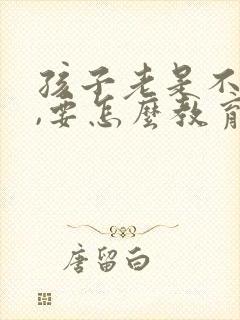 孩子老是不
,要怎麼教育
唐留白